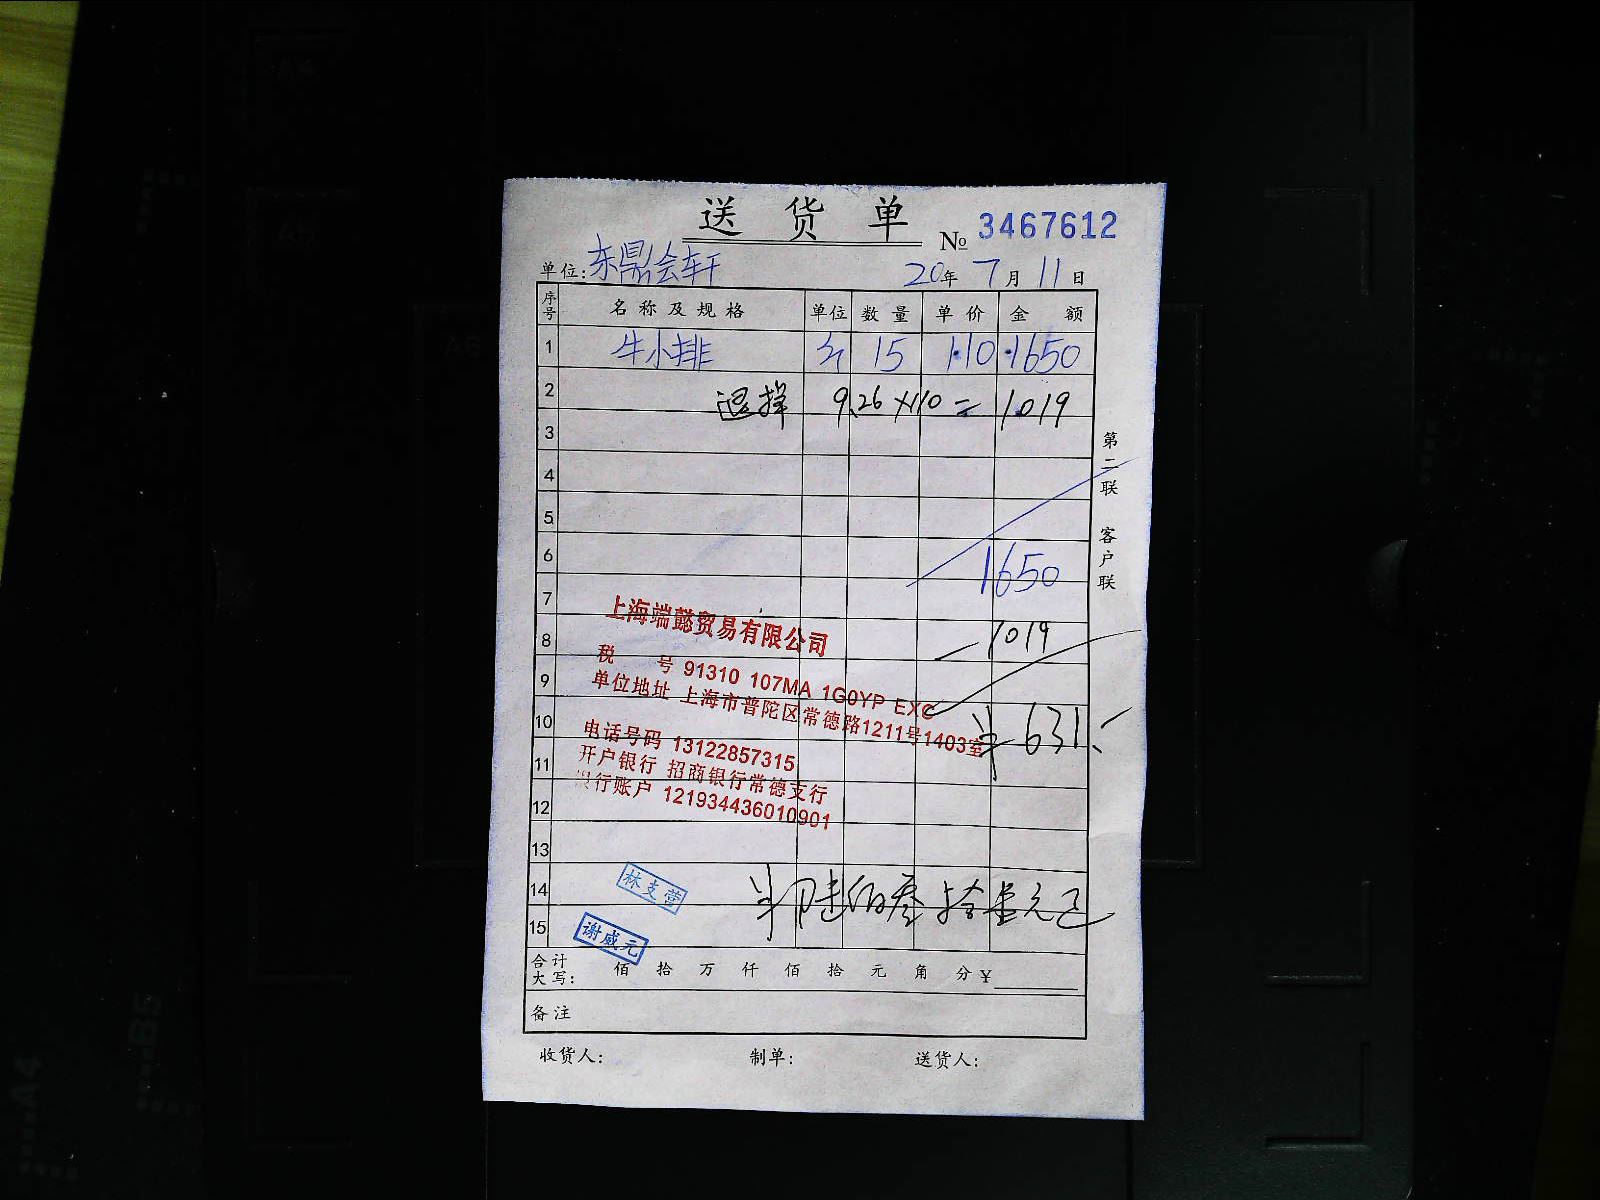 送货单 № 3467612
单位: 东鼎会轩 20年 7月 11日
序号 名称及规格 单位 数量 单价 金额
1 牛小排 斤 15 110 1650
2 退掉 9.26×110=1019
3
4
5
6 1650
7
8 -1019
9
10 ¥631.-
11
12
13
14 ¥陆佰叁拾壹元正
15
上海端懿贸易有限公司
税 号 91310 107MA 1G0YP EXC
单位地址 上海市普陀区常德路1211号1403室
电话号码 13122857315
开户银行 招商银行常德支行
银行账户 121934436010901
林支营
谢威元
合计大写: 佰 拾 万 仟 佰 拾 元 角 分 ¥
备注
收货人: 制单: 送货人:
第二联 客户联